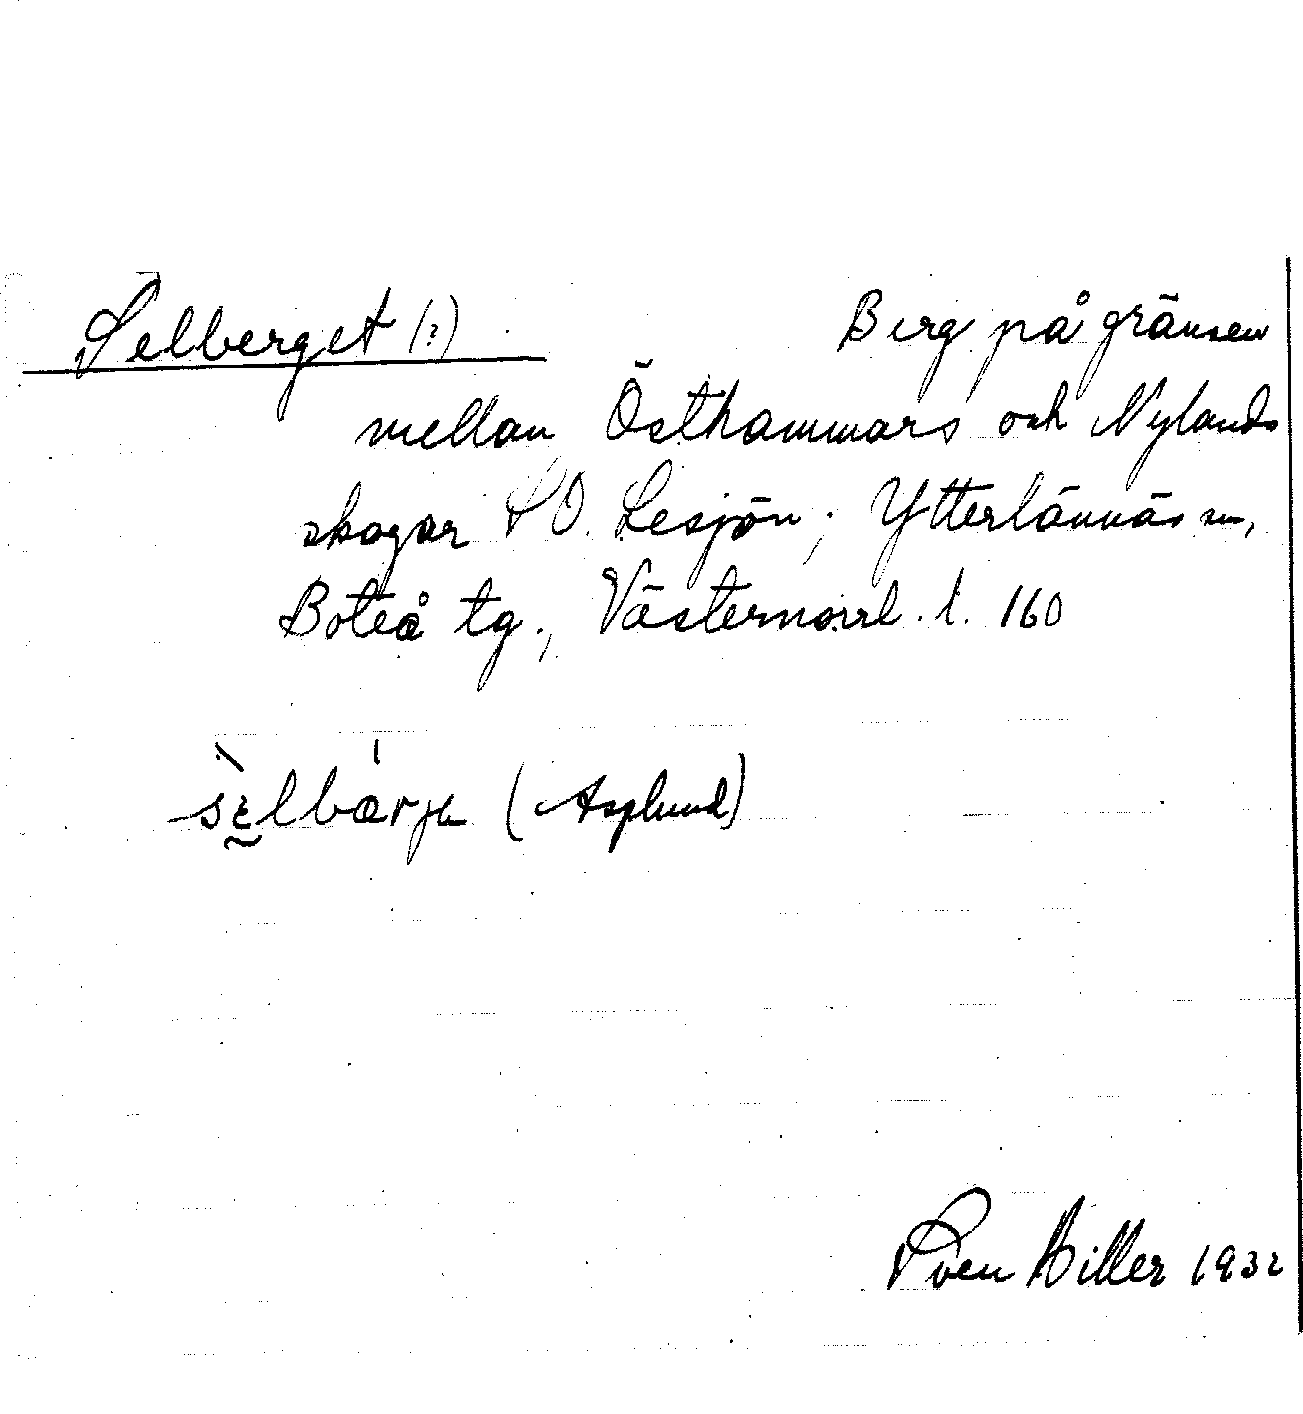 Selberget (?) Berg på gränsen
mellan Östhammars och Nylands
skogar SO. Lesjön; Ytterlännäs sn,
Boteå tg., Västernorrl. l. 160
(Asplund)
Sven Hiller 1932